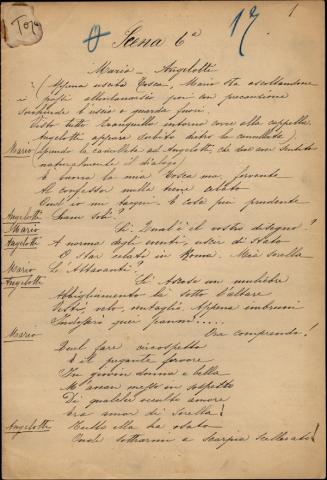 1
Tosca
17
Scena 6ª
Mario - Angelotti
(Appena uscita Tosca, Mario sta ascoltandone
i passi allontanarsi, poi con precauzione
socchiude l'uscio e guarda fuori.
Visto tutto tranquillo intorno corre alla cappella.
Angelotti appare subito dietro la cancellata
Mario (aprendo la cancellata ad Angelotti, che deve aver sentito
naturalmente il dialogo)
È buona la mia Tosca ma, fervente
Al confessor nulla tiene celato
Ond'io mi tacqui. È cosa più prudente
Angelotti Siam soli?
Mario Sì. Qual'è il vostro disegno?
Angelotti A norma degli eventi, uscir di Stato
O star celato in Roma. Mia sorella
Mario L'Attavanti?
Angelotti Sì Ascose un muliebre
Abbigliamento là sotto l'altare
Vesti, velo, ventaglio. Appena imbruni
Indosserò quei panni.....
Mario Ora comprendo!
Quel fare circospetto
E il pregante fervore
In giovin donna e bella
M'avean messo in sospetto
Di qualche occulto amore
Era amor di sorella!
Angelotti Tutto ella ha osato
Onde sottrarmi a Scarpia scellerato!